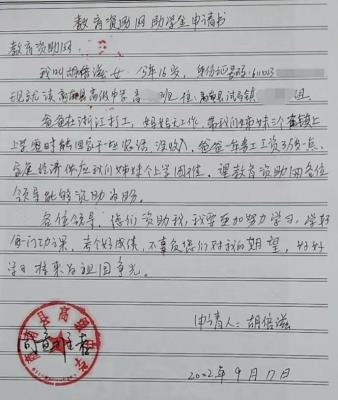 教育资助网助学金申请书
教育资助网:
我叫胡倍滋 女 今年16岁, 身份证号码: 611023
现就读商南县高级中学高 班 住: 商南县试马镇 组.
爸爸在浙江打工, 妈妈无工作, 带我们姊妹三个在镇上
上学,有时能回家干一些农活, 没收入, 爸爸一年务工工资3万多一点,
家庭经济供应我们姊妹个上学困难. 望教育资助网各位
领导能够资助为盼.
各位领导, 您们资助我,我要更加努力学习, 学好
每门功课, 考个好成绩, 不辜负您们对我的期望, 好好
学习将来为祖国争光.
申请人: 胡倍滋
2022年9月17日
商南县高级中学